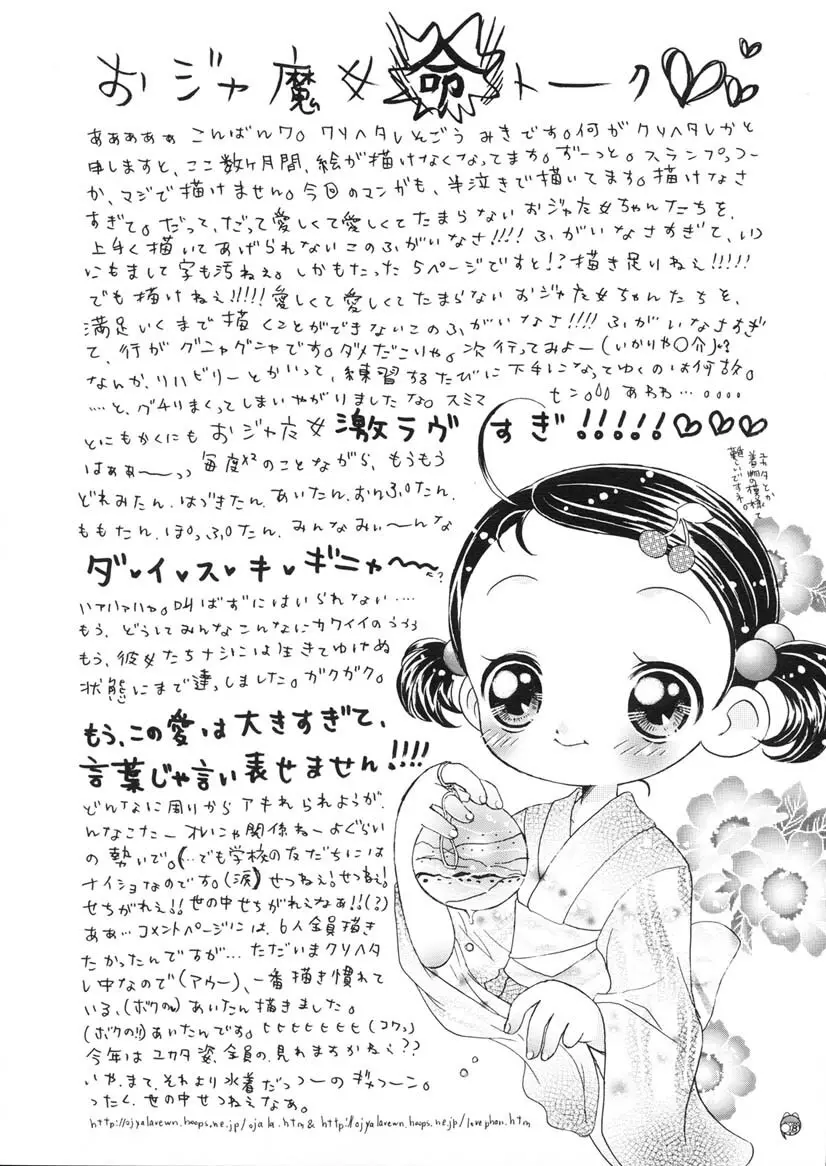 おジャ魔女命トーク
ああああぁ こんばんワ。クリヘタレそごう みきです。何がクリヘタレかと
申しますと、ここ数ヶ月間、絵が描けなくなってます。ずーっと。スランプっつー
か、マジで描けません。今回のマンガも、半泣きで描いてます。描けなさ
すぎて。だって、だって愛しくて愛しくてたまらない おジャ魔女ちゃんたちを、
上手く描いてあげられないこのふがいなさ!!!! ふがいなさすぎて、いつ
にもまして字も汚ねぇ。しかもたった5ページですと!? 描き足りねえ!!!!!
でも描けねえ!!!!! 愛しくて愛しくてたまらない おジャ魔女ちゃんたちを、
満足いくまで描くことができないこのふがいなさ!!!! ふがいなさすぎ
て、行がグニャグニャです。ダメだこりゃ。次行ってみよー(いかりや○介)
なんか、リハビリーとかいって、練習するたびに下手になってゆくのは何故。
……と、グチりまくってしまいやがりましたな。スミマセン。あわわ…
とにもかくにも おジャ魔女 激ラヴすぎ!!!!!
はぁぁ〜っっ 毎度のことながら、もうもう
どれみたん、はづきたん、あいたん、おんぷたん、
ももたん、ぽっぷたん、みんなみぃ〜んな
ダ・イ・ス・キ・ギニャ〜
ハァハァハァ。叫ばずにはいられない‥‥
もう、どうしてみんなこんなにカワイイのううう
もう、彼女たちナシには生きてゆけぬ
状態にまで達っしました。ガクガク。
もう、この愛は大きすぎて、
言葉じゃ言い表せません!!!!
どんなに周りからアキれられようが、
んなこたーオレにゃ関係ねーよぐらい
の勢いで。(…でも学校の友だちには
ナイショなのです。(涙)せつねえ!せつねえ!
せちがれえ!! 世の中せちがれえなぁ!!(?)
ああ… コメントページには、6人全員描き
たかったんですが… ただいまクリヘタ
レ中なので(アウー)、一番描き慣れて
いる、(ボクの)あいたん描きました。
(ボクの!!)あいたんです。ヒヒヒヒヒヒ(コワっ)
今年はユカタ姿、全員の見れますかねえ??
いや、まて、それより水着だっつーのギャフーン。
ったく、世の中せつねえなぁ。
http://ojyalavewn.hoops.ne.jp/ojala.htm & http://ojyalavewn.hoops.ne.jp/lovephan.htm
ユカタとか
着物の模様て
難しいですネ。